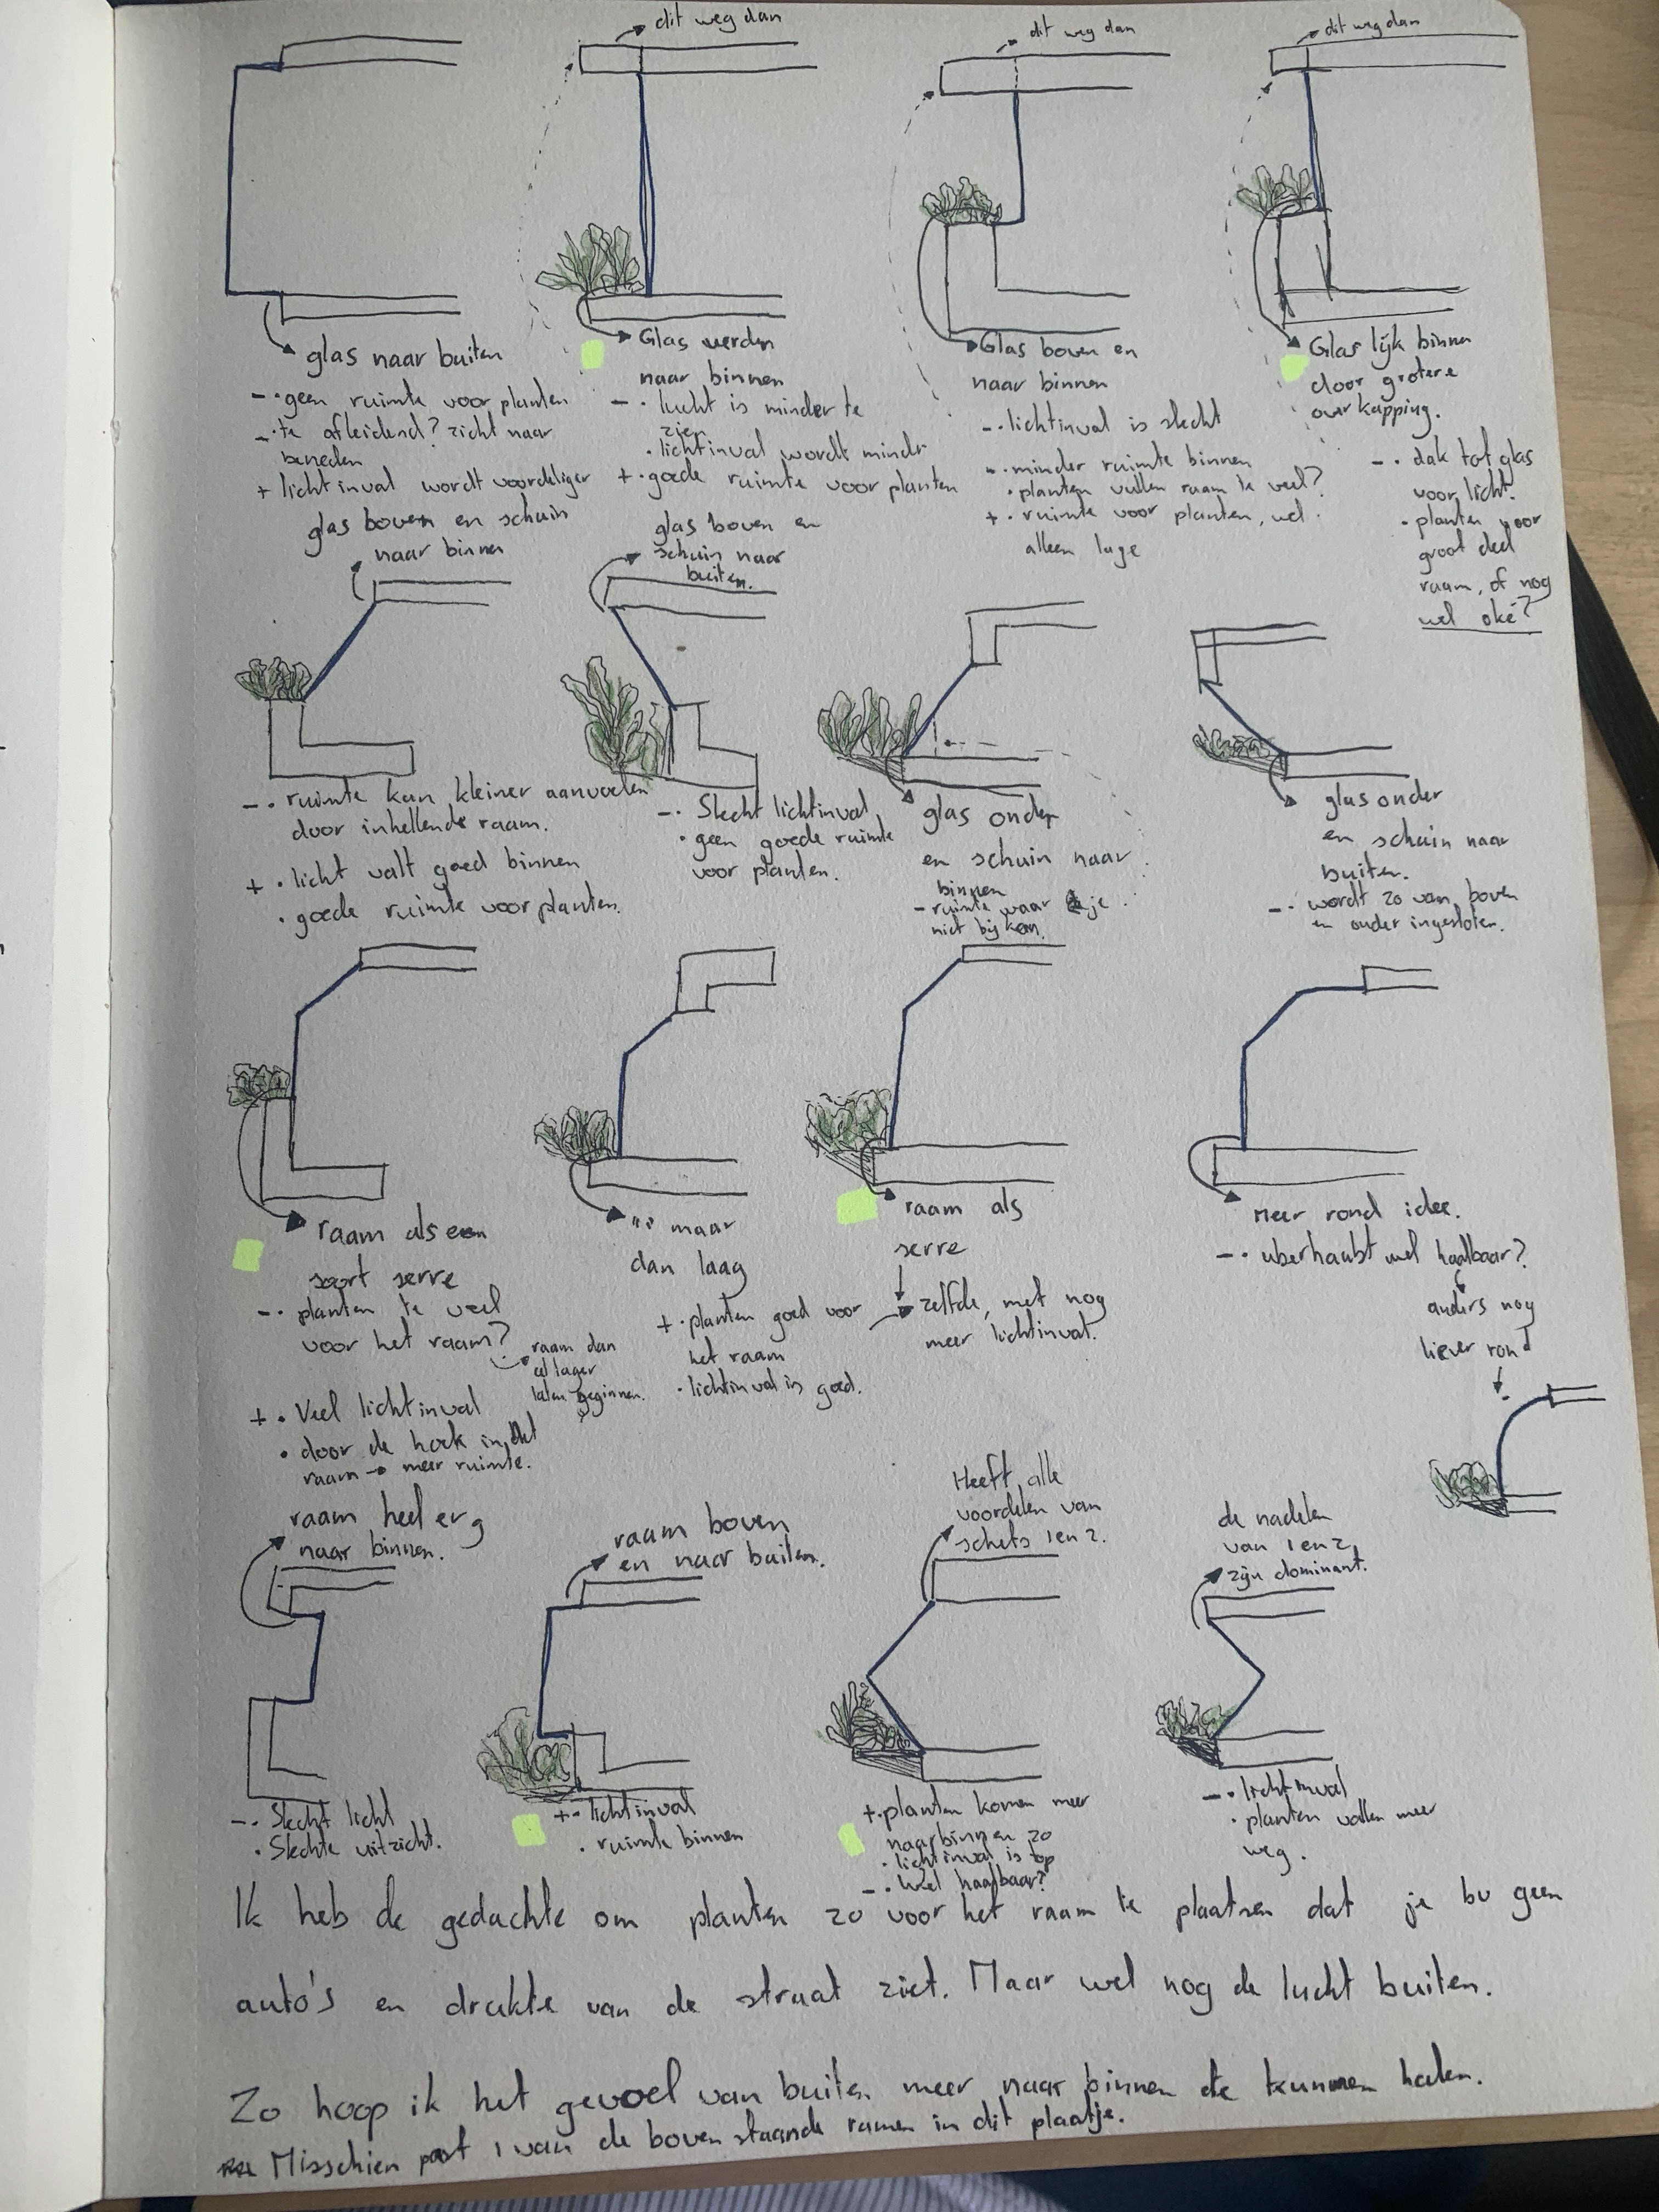 dit weg dan
dit weg dan
dit weg dan
glas naar buiten
- · geen ruimte voor planten
- · te afleidend? zicht naar
beneden
+ lichtinval wordt voordeliger
Glas verden
naar binnen
- · lucht is minder te
zien
· lichtinval wordt minder
+ · goede ruimte voor planten
Glas boven en
naar binnen
- · lichtinval is slecht
- · minder ruimte binnen
· planten vullen raam te veel?
+ · ruimte voor planten, wel
alleen lage
Glas lijk binnen
door grotere
overkapping.
- · dak tot glas
voor licht.
· planten voor
groot deel
raam, of nog
wel oké?
glas boven en schuin
naar binnen
- · ruimte kan kleiner aanvoelen
door inhellende raam.
+ · licht valt goed binnen
· goede ruimte voor planten.
glas boven en
schuin naar
buiten.
- · Slecht lichtinval
· geen goede ruimte
voor planten.
glas onder
en schuin naar
binnen
- ruimte waar je
niet bij kan.
glas onder
en schuin naar
buiten.
- · wordt zo van boven
en onder ingesloten.
raam als een
soort serre
- · planten te veel
voor het raam?
raam dan
al lager
laten beginnen.
+ · Veel lichtinval
· door de hoek in het
raam → meer ruimte.
"" maar
dan laag
+ · planten goed voor
het raam
· lichtinval is goed.
raam als
serre
zelfde, met nog
meer lichtinval.
Meer rond idee.
- · uberhaubt wel haalbaar?
anders nog
liever rond
raam heel erg
naar binnen.
- · Slecht licht
· Slechte uitzicht.
raam boven
en naar buiten.
+ · lichtinval
· ruimte binnen
Heeft alle
voordelen van
schets 1 en 2.
+ · planten komen meer
naar binnen zo
· lichtinval is top
- · Wel haalbaar?
de nadelen
van 1 en 2
zijn dominant.
- · lichtinval
· planten vallen meer
weg.
Ik heb de gedachte om planten zo voor het raam te plaatsen dat je bv geen
auto's en drukte van de straat ziet. Maar wel nog de lucht buiten.
Zo hoop ik het gevoel van buiten meer naar binnen te kunnen halen.
Misschien past 1 van de bovenstaande ramen in dit plaatje.